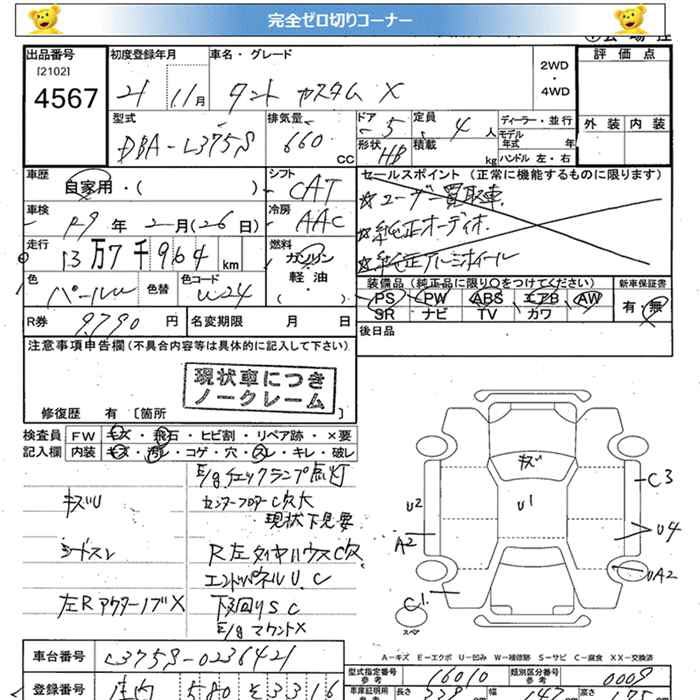 完全ゼロ切りコーナー
出品番号
[2102]
4567
初度登録年月
21 11月
車名・グレード
タント カスタム X
2WD
・
4WD
評価点
外装 内装
型式
DBA-L375S
排気量
660 CC
ドア 5
定員 4 人
形状 HB
積載 kg
ディーラー・並行
モデル年式 年
ハンドル 左・右
車歴
自家用・( )
シフト
CAT
セールスポイント (正常に機能するものに限ります)
☆ユーザー買取車
☆純正オーディオ
☆純正アルミホイール
車検
R9年 2月(26日)
冷房
AAC
走行
13万7千964 km
燃料
ガソリン
軽油
( ・ )
色
パールW
色替
色コード
W24
装備品 (純正品に限り○をつけてください)
PS PW ABS エアB AW
SR ナビ TV カワ
新車保証書
有・無
R券 9790 円
名変期限 月 日
後日品
注意事項申告欄 (不具合内容等は具体的に記入して下さい)
現状車につき
ノークレーム
修復歴 有 〔箇所
検査員
記入欄
FW キズ・飛石・ヒビ割・リペア跡・×要
内装 キズ・汚レ・コゲ・穴・スレ・キレ・破レ
E/gチェックランプ点灯
キズU
センターフロアーC穴大
現状下見要
シートスレ
R左タイヤハウスC穴
エンドパネルU.C
左RアウターノブX
下回りSC
E/gマウントX
キズ
U1
U2
A2
C1
C3
U4
UA2
スペア
A－キズ E－エクボ U－凹み W－補修跡 S－サビ C－腐食 XX－交換済
車台番号
L375S-0236421
登録番号
庄内 580 そ 3316
型式指定番号
参考
16010
類別区分番号
参考
0009
車庫証明用
参考
長さ
幅
147
高さ